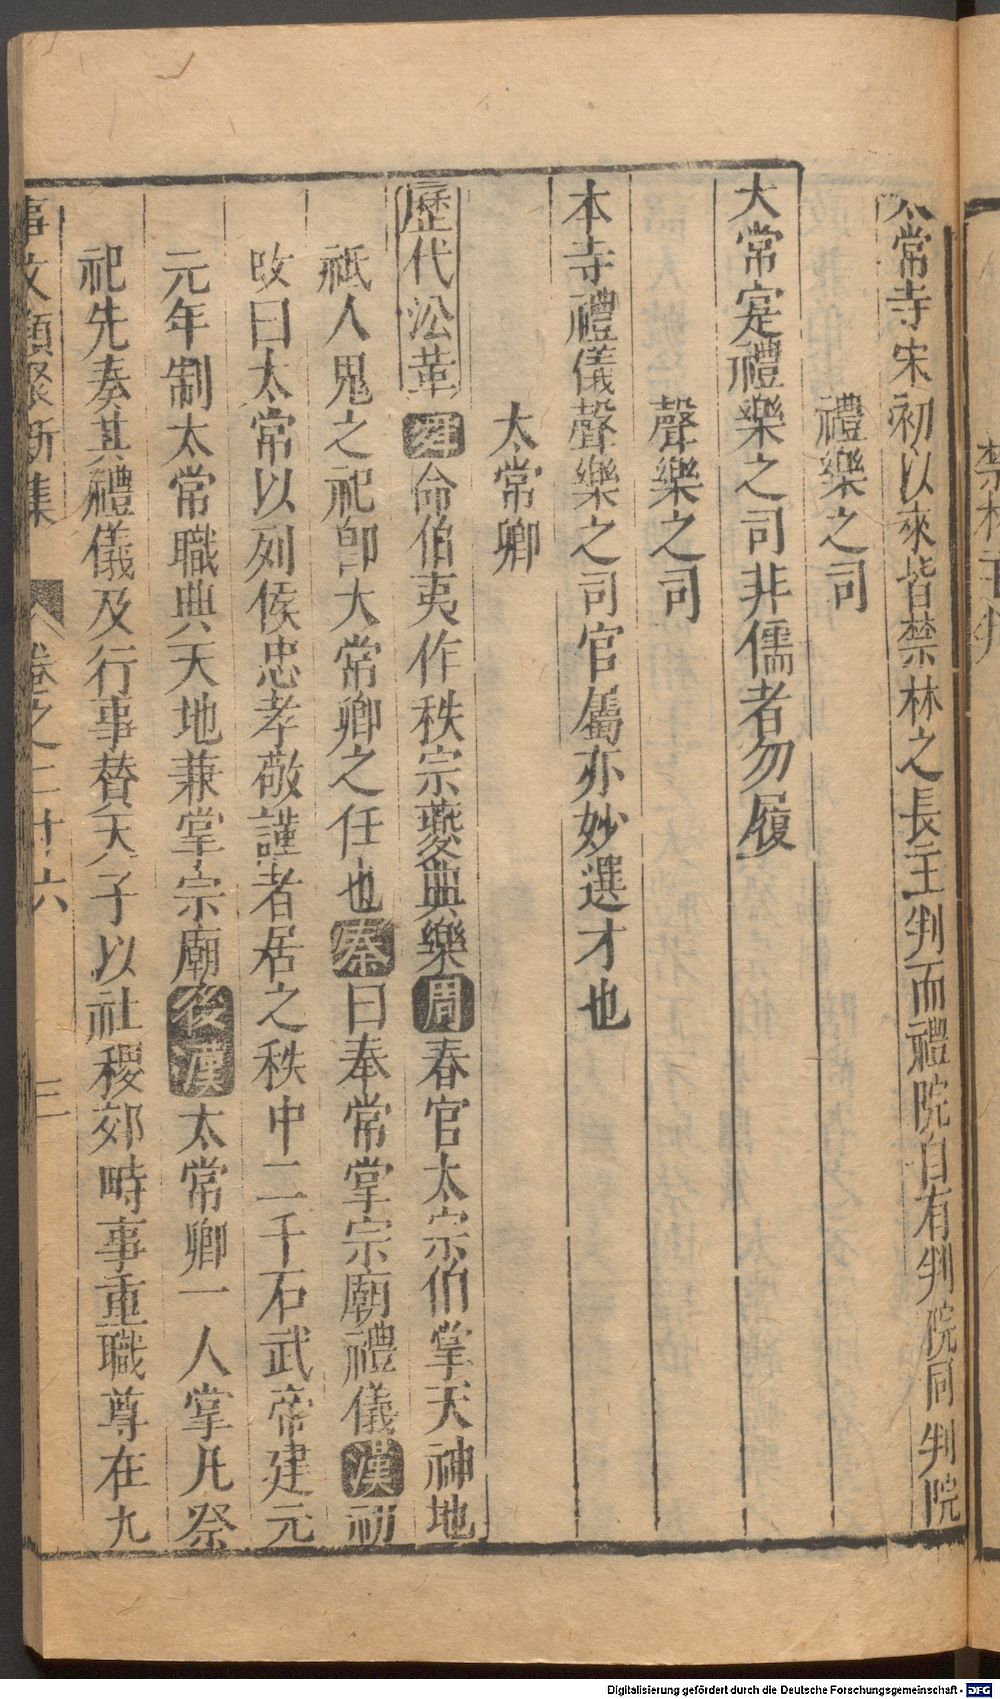 太常寺宋初以來皆禁林之長主判而禮院自有判院同判院
禮樂之司
大常寔禮樂之司非儒者勿履
聲樂之司
本寺禮儀聲樂之司官屬亦妙選才也
太常卿
歷代㳂革 命伯夷作秩宗夔典樂周春官太宗伯掌天神地
祗人鬼之祀卽大常卿之任也秦曰奉常掌宗廟禮儀漢初
改曰太常以列侯忠孝敬謹者居之秩中二千石武帝建元
元年制太常職典天地兼掌宗廟後漢太常卿一人掌凡祭
祀先奏其禮儀及行事替天子以社稷郊畤事重職尊在九
事文類聚新集 卷之二十六 三
Digitalisierung gefördert durch die Deutsche Forschungsgemeinschaft - DFG